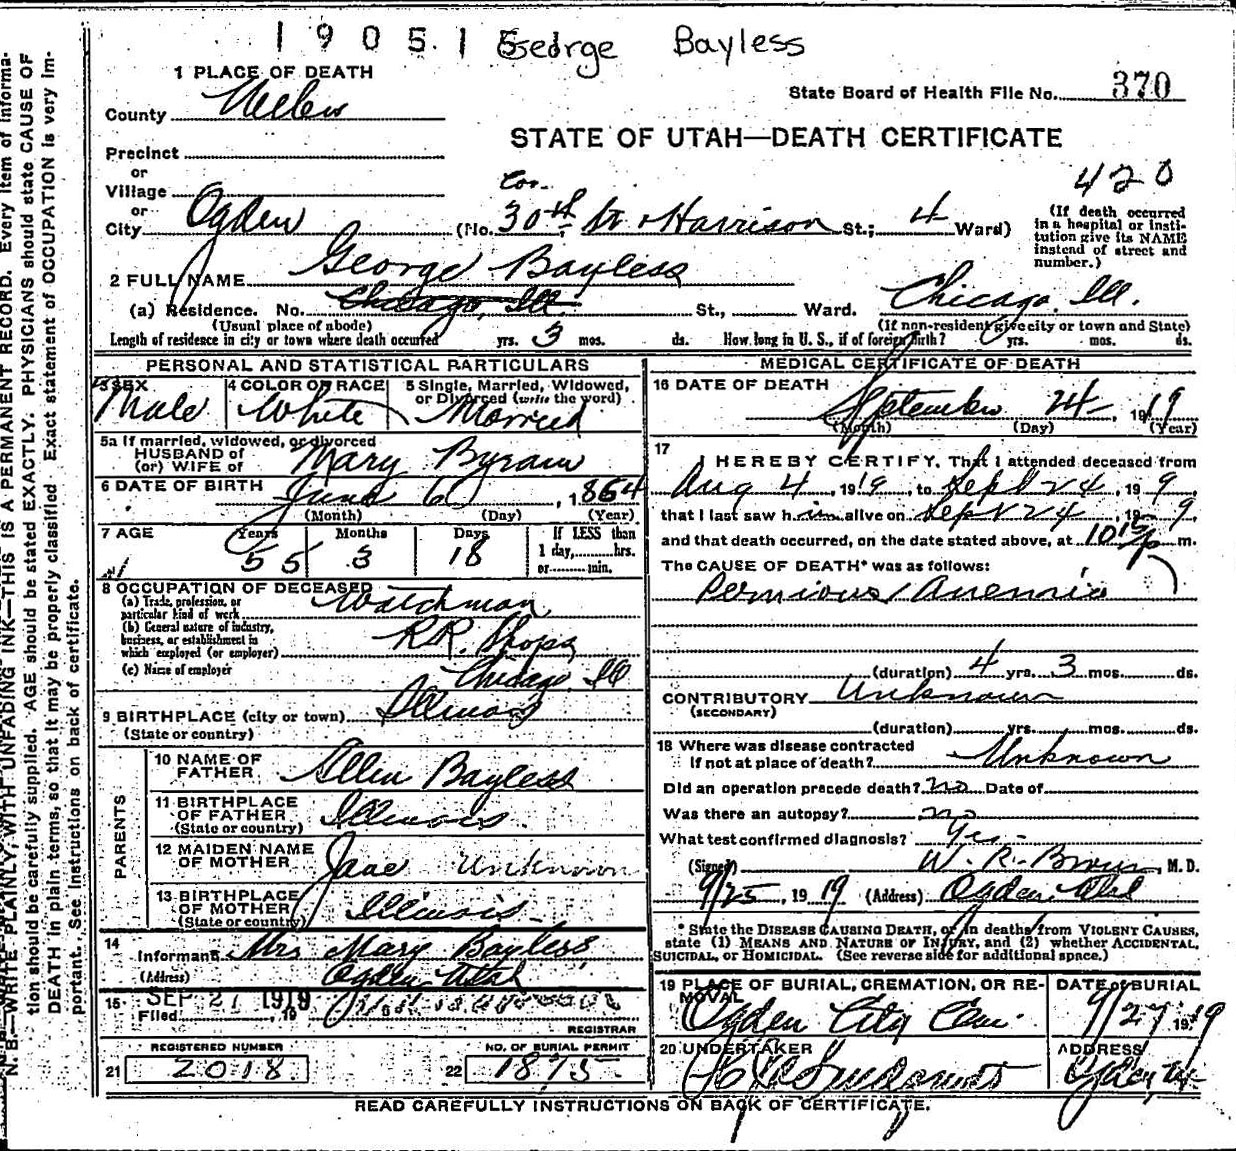 190515
George Bayless
1 PLACE OF DEATH
State Board of Health File No. 370
County Weber
STATE OF UTAH—DEATH CERTIFICATE
Precinct
or
Village
420
or
City Ogden
Cor.
(No. 30th & Harrison St.; 4 Ward)
(If death occurred in a hospital or institution give its NAME instead of street and number.)
2 FULL NAME George Bayless
(a) Residence. No. Chicago, Ill. St., Ward. Chicago, Ill.
(Usual place of abode)
(If non-resident give city or town and State)
Length of residence in city or town where death occurred yrs. 3 mos. ds. How long in U. S., if of foreign birth? yrs. mos. ds.
PERSONAL AND STATISTICAL PARTICULARS
3 SEX Male
4 COLOR OR RACE White
5 Single, Married, Widowed, or Divorced (write the word) Married
5a If married, widowed, or divorced
HUSBAND of
(or) WIFE of Mary Byram
6 DATE OF BIRTH June 6, 1864
(Month) (Day) (Year)
7 AGE Years 55 Months 3 Days 18 If LESS than 1 day, hrs. or min.
8 OCCUPATION OF DECEASED
(a) Trade, profession, or particular kind of work Watchman
(b) General nature of industry, business, or establishment in which employed (or employer) R.R. Shops
(c) Name of employer Chicago, Ill
9 BIRTHPLACE (city or town) Illinois
(State or country)
PARENTS
10 NAME OF FATHER Allen Bayless
11 BIRTHPLACE OF FATHER Illinois
(State or country)
12 MAIDEN NAME OF MOTHER Jane Unknown
13 BIRTHPLACE OF MOTHER Illinois
(State or country)
14
Informant Mrs Mary Bayless
(Address) Ogden Utah
15 Filed SEP 27 1919, 19
REGISTRAR
REGISTERED NUMBER
21 2018
NO. OF BURIAL PERMIT
22 1875
MEDICAL CERTIFICATE OF DEATH
16 DATE OF DEATH
September 24, 1919
(Month) (Day) (Year)
17
I HEREBY CERTIFY, That I attended deceased from
Aug 4, 1919, to Sept 24, 199
that I last saw him alive on Sept 24, 199
and that death occurred, on the date stated above, at 10 15 P m.
The CAUSE OF DEATH* was as follows:
Pernicious Anemia
(duration) 4 yrs. 3 mos. ds.
CONTRIBUTORY Unknown
(SECONDARY)
(duration) yrs. mos. ds.
18 Where was disease contracted
If not at place of death? Unknown
Did an operation precede death? no Date of
Was there an autopsy? no
What test confirmed diagnosis? Yes-
(Signed) W. R. Brown, M.D.
9/25, 1919 (Address) Ogden, Utah
* State the DISEASE CAUSING DEATH, or in deaths from VIOLENT CAUSES,
state (1) MEANS AND NATURE OF INJURY, and (2) whether ACCIDENTAL,
SUICIDAL, or HOMICIDAL. (See reverse side for additional space.)
19 PLACE OF BURIAL, CREMATION, OR REMOVAL
Ogden City Cem.
DATE of BURIAL
9/27 1919
20 UNDERTAKER
ADDRESS
Ogden, Ut
READ CAREFULLY INSTRUCTIONS ON BACK OF CERTIFICATE.
N. B.—WRITE PLAINLY, WITH UNFADING INK—THIS IS A PERMANENT RECORD. Every item of information should be carefully supplied. AGE should be stated EXACTLY. PHYSICIANS should state CAUSE OF DEATH in plain terms, so that it may be properly classified. Exact statement of OCCUPATION is very important. See instructions on back of certificate.